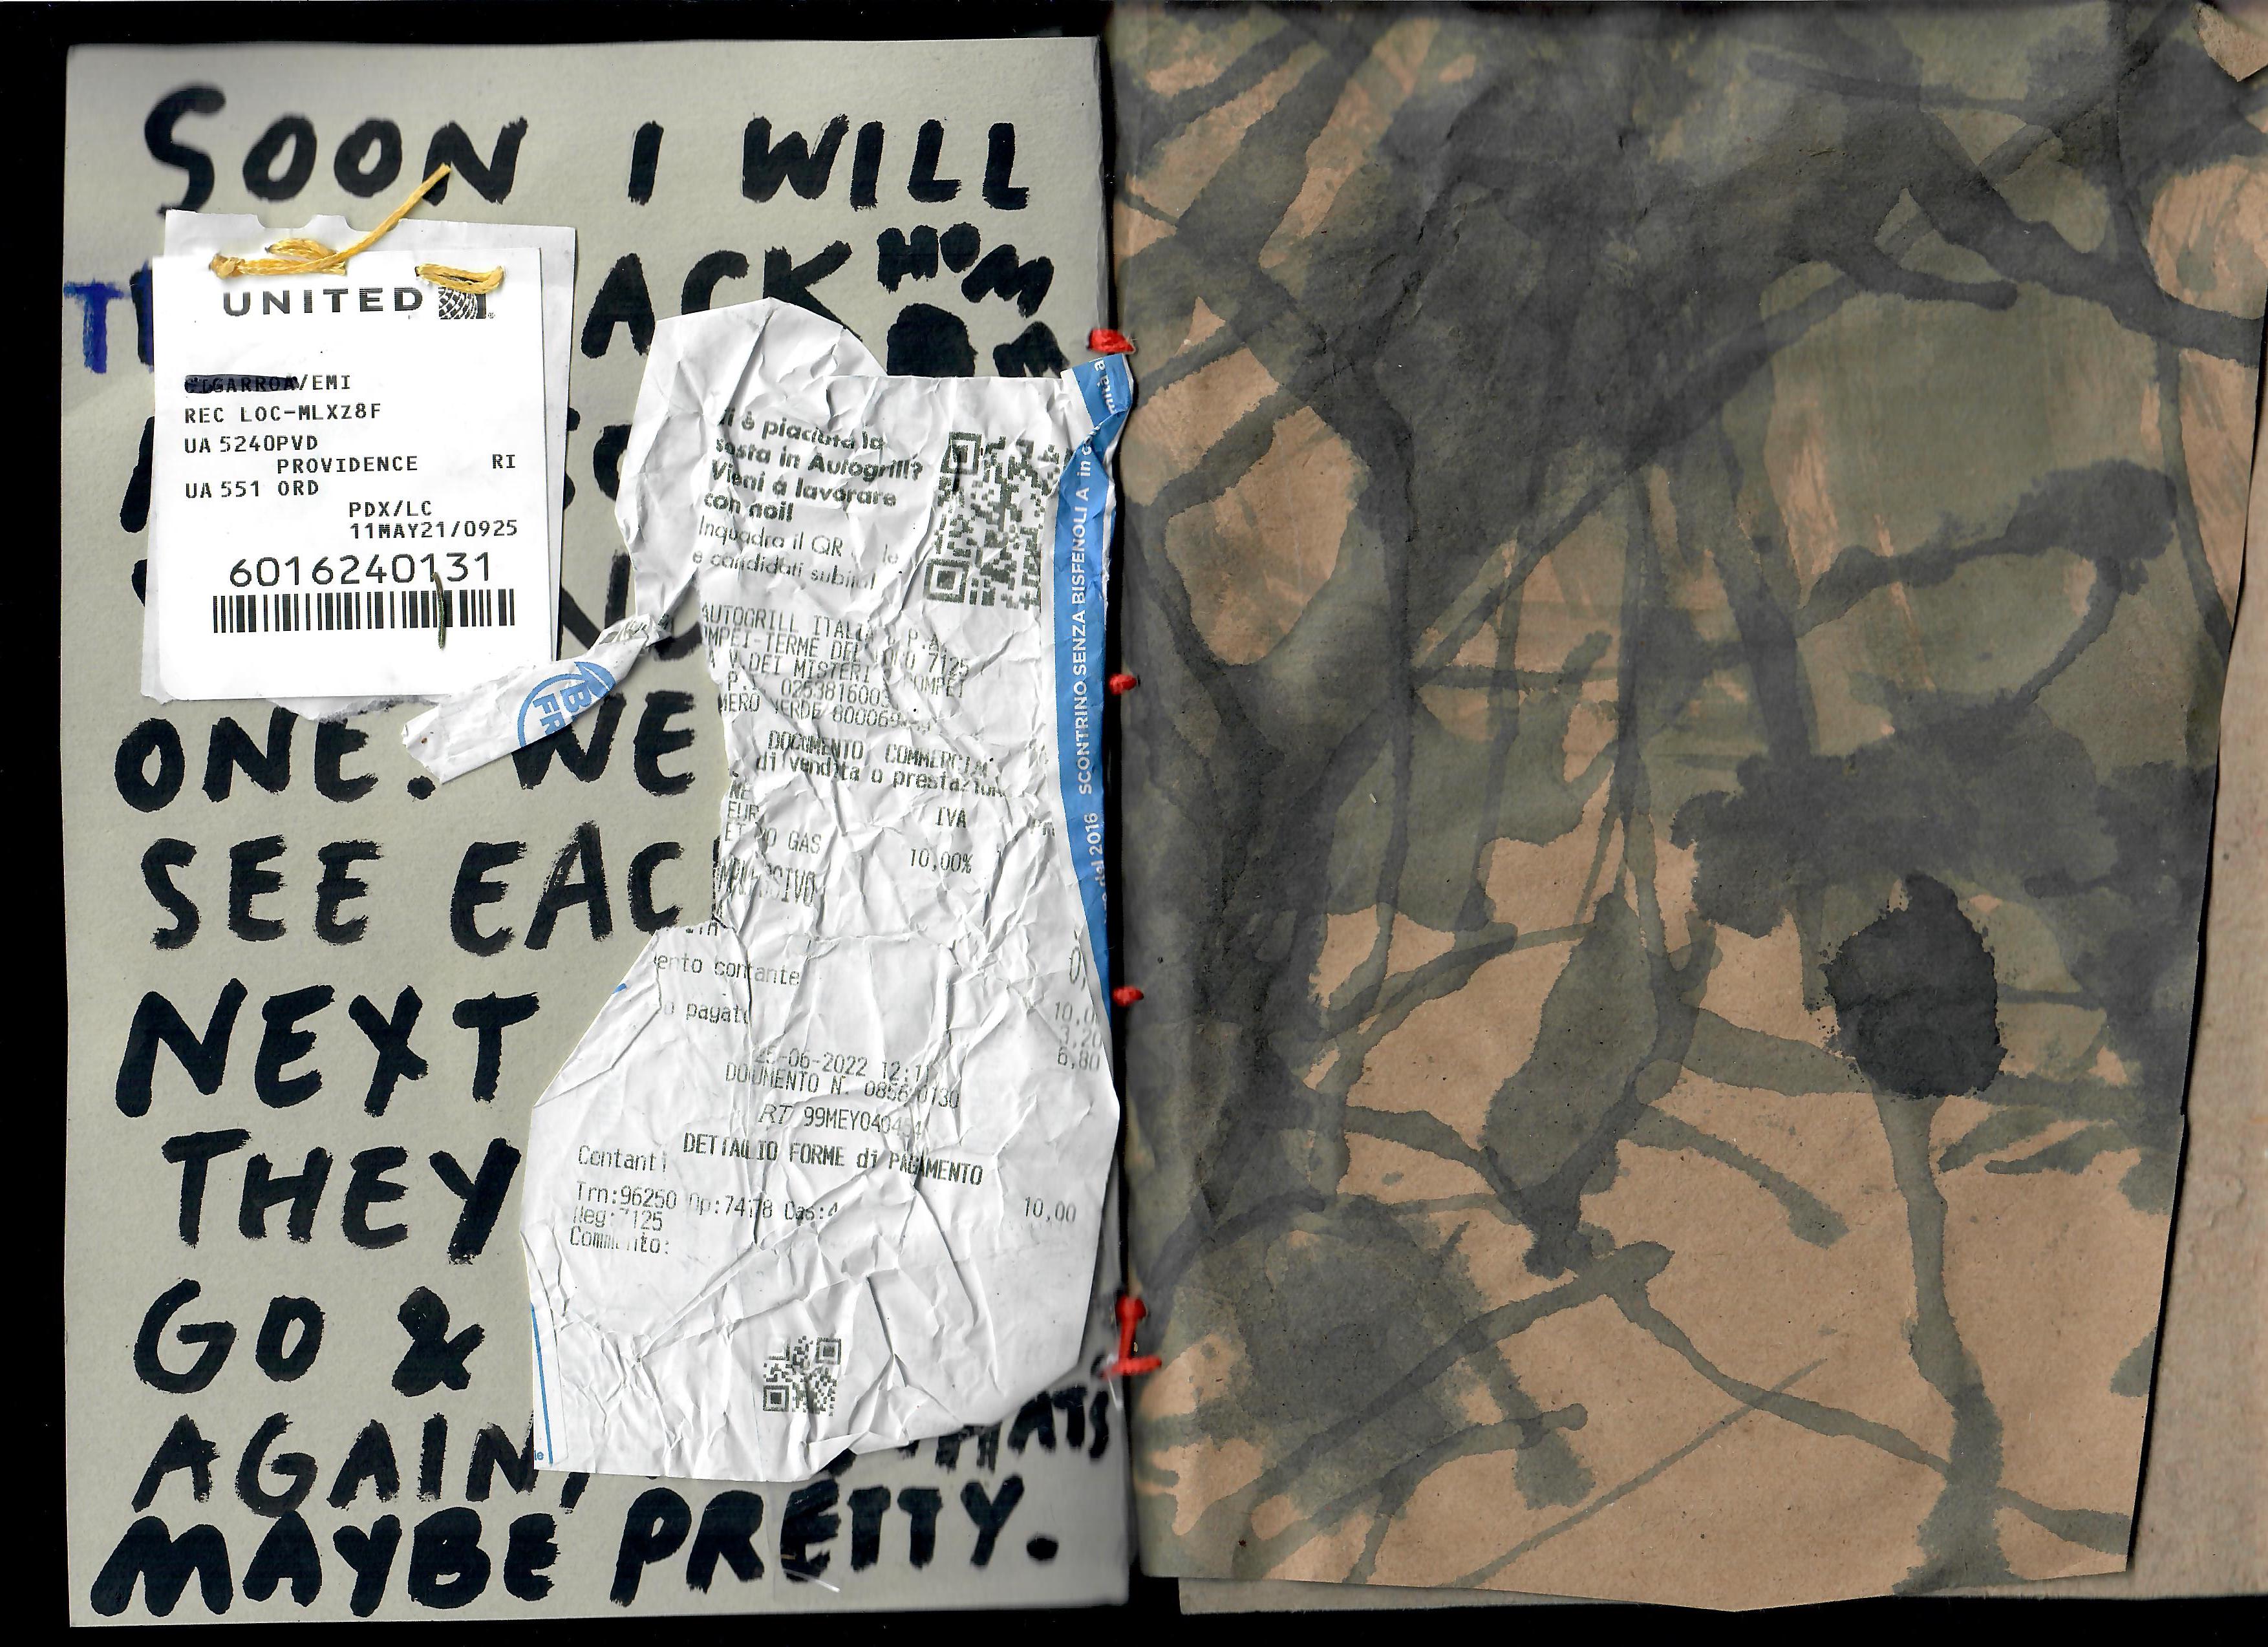 SOON I WILL
ACK HOM
ONE. WE
SEE EAC
NEXT
THEY
GO &
AGAIN,
THATS
MAYBE PRETTY.
UNITED
/EMI
REC LOC-MLXZ8F
UA 5240PVD
PROVIDENCE RI
UA 551 ORD
PDX/LC
11MAY21/0925
6016240131
i è piaciuta la
sosta in Autogrill?
Vieni a lavorare
con noi!
Inquadra il QR
e candidati subito!
AUTOGRILL ITALIA P.A.
OMPEI-TERME DEL 7125
V.DEI MISTERI POMPEI
P. 0253816005
MERO VERDE 800069
DOCUMENTO COMMERCIAL
di vendita o prestazion
NE
EUR IVA
ET GAS 10,00%
erto contante 0,
o pagato 10,0
3,20
6,80
25-06-2022 12:11
DOCUMENTO N. 0856-0130
RT 99MEY040434
DETTAGLIO FORME di PAGAMENTO
Contanti 10,00
Trn:96250 Op:7478 Cas:4
Neg:7125
Commento:
SCONTRINO SENZA BISFENOLI A in c
del 2016
mità a
BP
FR